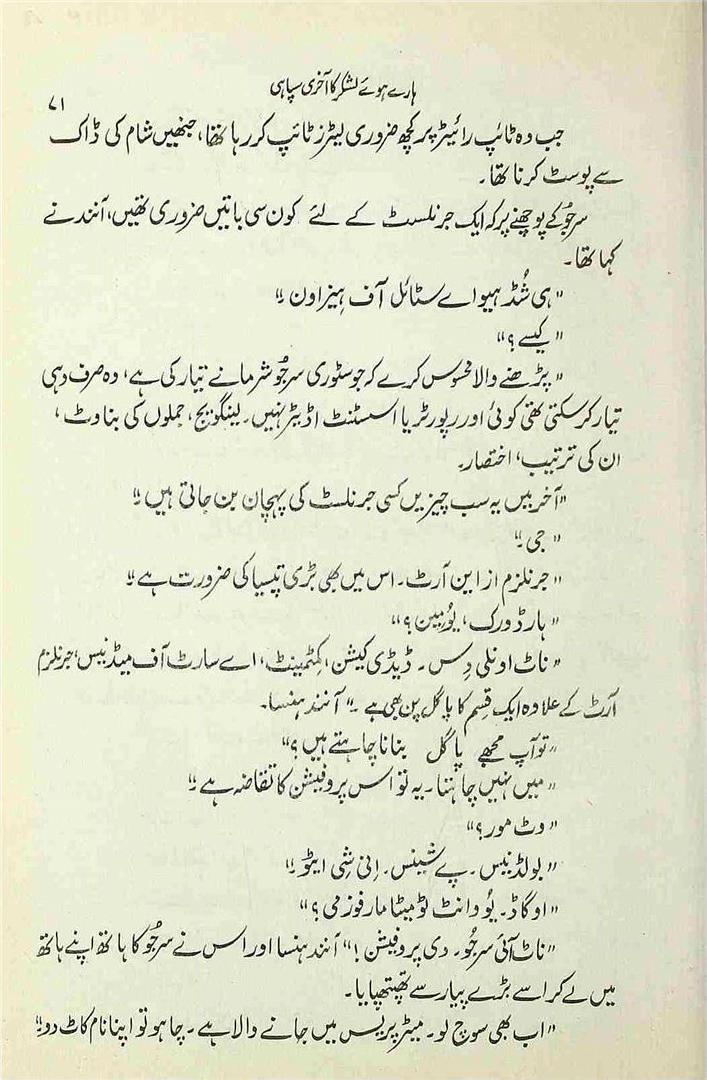 ہارے ہوئے لشکر کا آخری سپاہی
۷۱
جب وہ ٹائپ رائیٹر پر کچھ ضروری لیٹرز ٹائپ کر رہا تھا، جنھیں شام کی ڈاک
سے پوسٹ کرنا تھا۔
سرجُو کے پوچھنے پر کہ ایک جرنلسٹ کے لئے کون سی باتیں ضروری تھیں، آنند نے
کہا تھا۔
"ہی شُڈ ہیو اے سٹائل آف ہِیز اون۔"
"کیسے؟"
"پڑھنے والا محسوس کرے کہ جو سٹوری سرجُو شرما نے تیار کی ہے، وہ صرف وہی
تیار کر سکتی تھی کوئی اور رپورٹر یا اسسٹنٹ اڈیٹر نہیں۔ لینگویج، جملوں کی بناوٹ،
ان کی ترتیب، اختصار۔
"آخر میں یہ سب چیزیں کسی جرنلسٹ کی پہچان بن جاتی ہیں۔"
"جی۔"
"جرنلزم از این آرٹ۔ اس میں بھی بڑی تپسیا کی ضرورت ہے۔"
"ہارڈ ورک، یُو مین؟"
"ناٹ اونلی دِس۔ ڈیڈی کیشن، کمِٹمینٹ، اے سارٹ آف میڈنیس، جرنلزم
آرٹ کے علاوہ ایک قسم کا پاگل پن بھی ہے۔" آنند ہنسا۔
"تو آپ مجھے پاگل بنانا چاہتے ہیں؟"
"میں نہیں چاہتا۔ یہ تو اس پروفیشن کا تقاضہ ہے۔"
"وٹ مور؟"
"بولڈنیس۔ پے شینس۔ اِنی شی ایٹو۔"
"او گاڈ۔ یُو وانٹ ٹو میٹا مارفوز می؟"
"ناٹ آئی سرجُو۔ دی پروفیشن!" آنند ہنسا اور اس نے سرجُو کا ہاتھ اپنے ہاتھ
میں لے کر اسے بڑے پیار سے تھپتھپایا۔
"اب بھی سوچ لو۔ میٹر پریس میں جانے والا ہے۔ چاہو تو اپنا نام کاٹ دو۔"